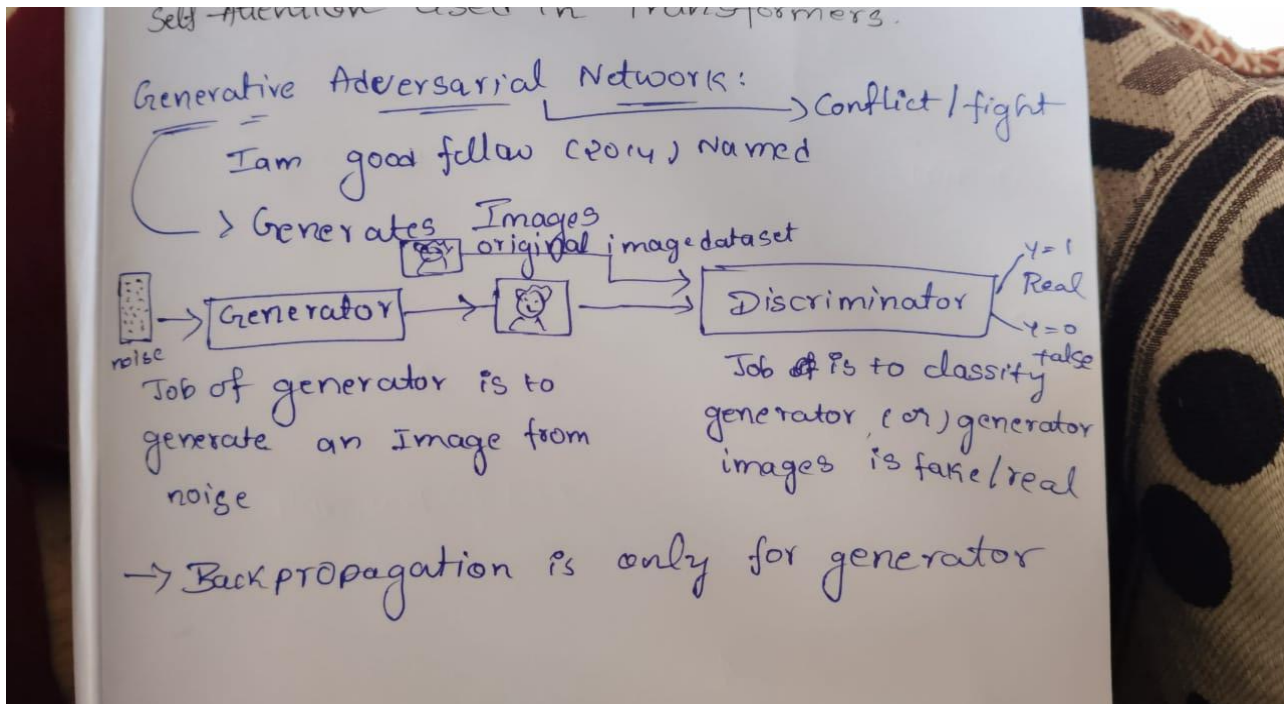 Self-Attention used in Transformers.
Generative Adversarial Network:
Conflict / fight
Iam good fellow (2014) Named
> Generates Images
original image dataset
noise
Generator
Discriminator
Y=1
Real
Y=0
false
Job of generator is to
generate an Image from
noise
Job is to classify
generator (or) generator
images is fake/real
→ Backpropagation is only for generator